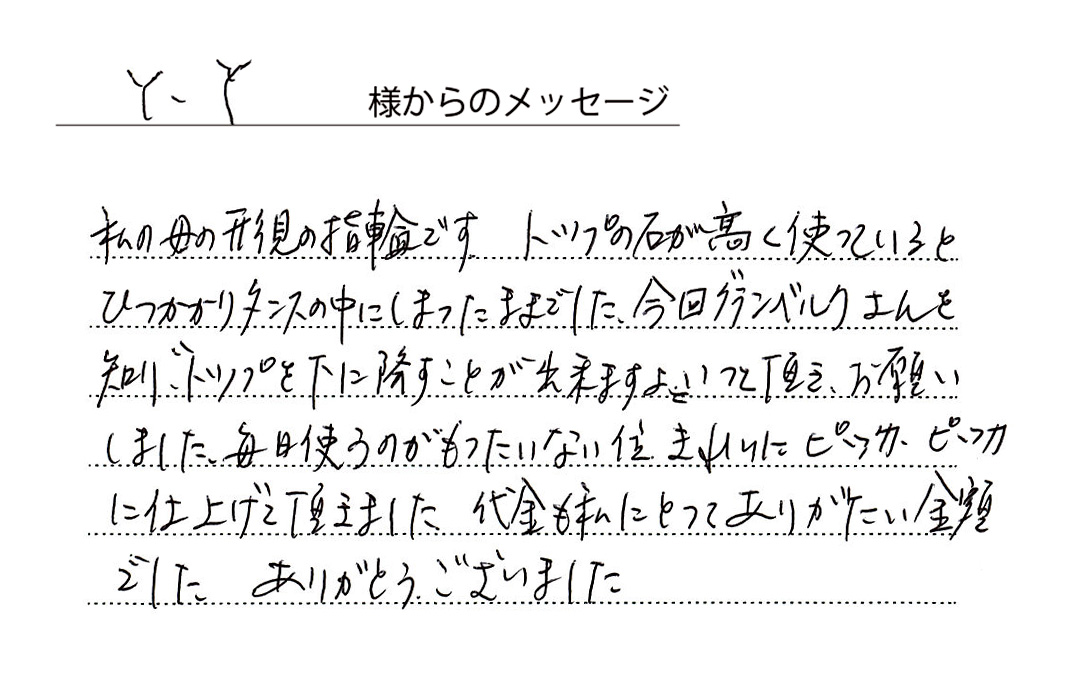 Y、Y 様からのメッセージ
私の母の形見の指輪です トップの石が高く使っていると
ひっかかりタンスの中にしまったままでした、今回グランベルクさんを
知り、トップを下に降すことが出来ますよといって頂き、お願い
しました、毎日使うのがもったいない位 きれいに ピッカ、ピッカ
に仕上げて頂きました 代金も私にとってありがたい金額
でした ありがとうございました